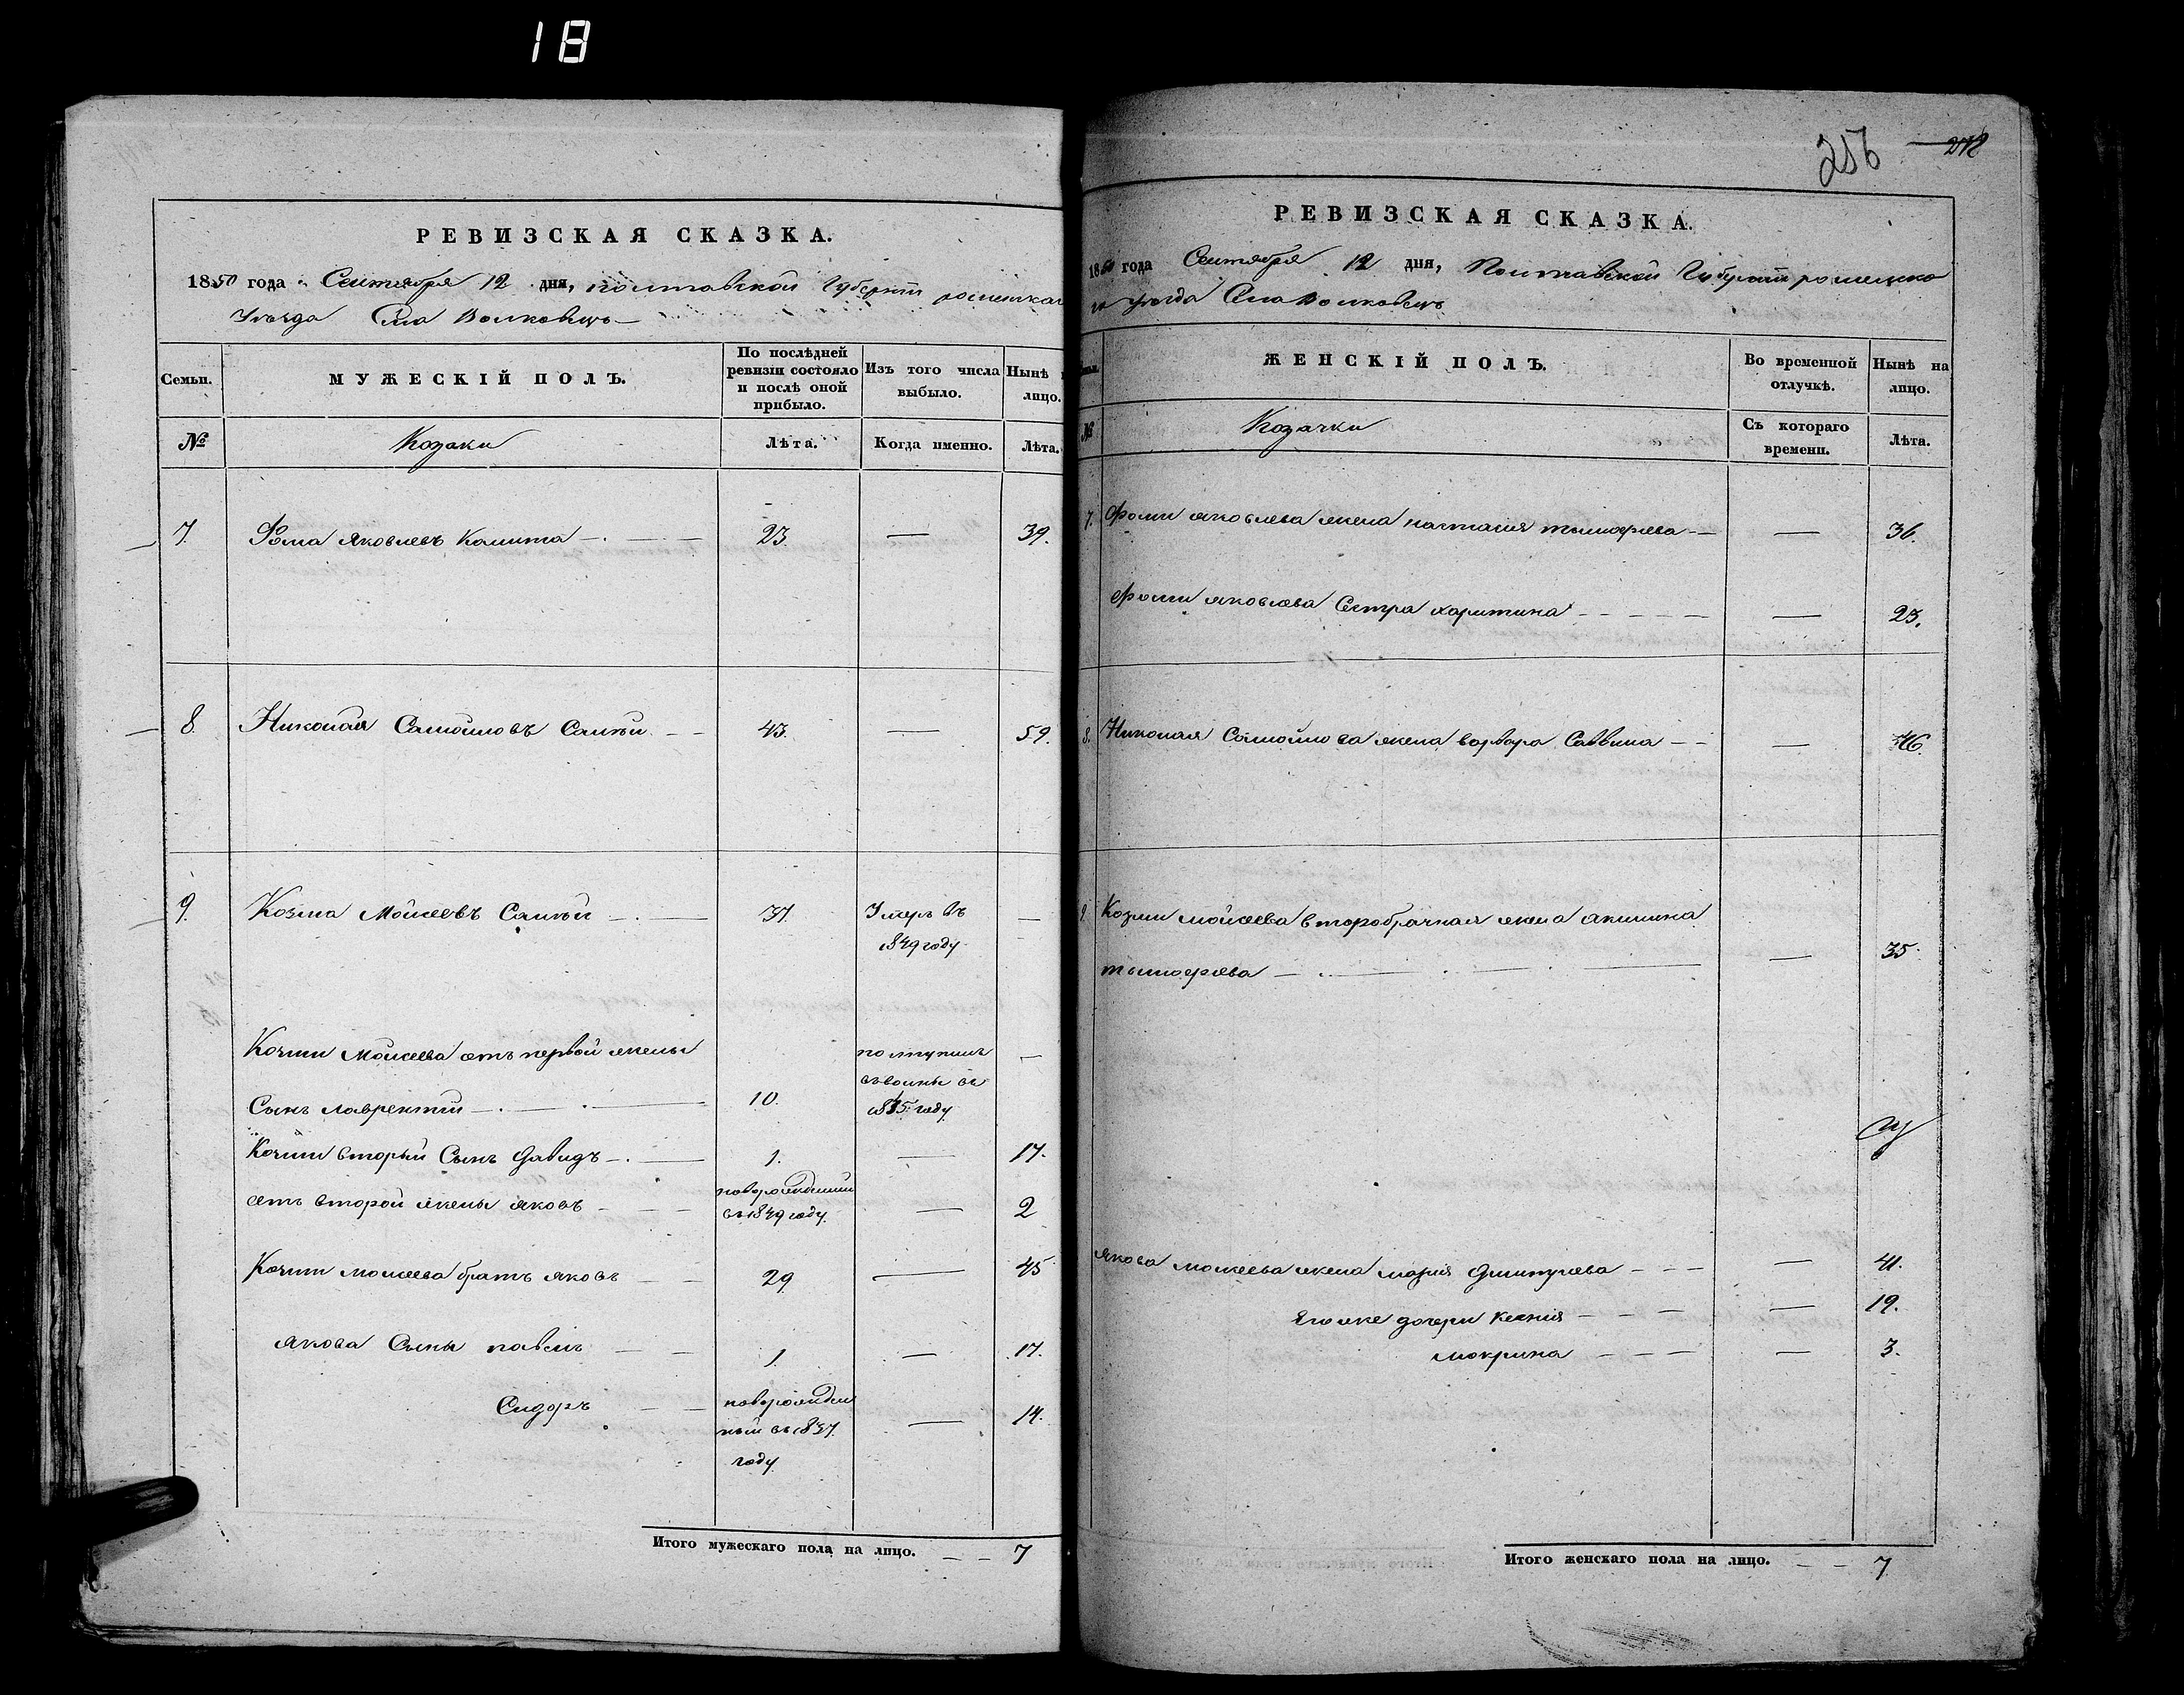 18
РЕВИЗСКАЯ СКАЗКА.
1850 года Сентября 12 дня, полтавской Губернии роменскаго
Уезда Села Волковецъ
Семьи.
МУЖЕСКІЙ ПОЛЪ.
По послѣдней ревизіи состояло и послѣ оной прибыло.
Изъ того числа выбыло.
Нынѣ на лицо.
№
Козаки
Лѣта.
Когда именно.
Лѣта.
7. Фома Яковлевъ Калита 23. — 39.
8. Николай Самойловъ 43. — 59.
9. Козма Мойсеевъ 37. Умеръ въ —
1849 году
Козми Мойсеева отъ первой жены
Сынъ лаврентий 10. —
1835 году
Козми вторый Сынъ Давидъ 1. — 17.
отъ второй жены яковъ новорожденний
въ 1849 году — 2
Козми моисеева братъ яковъ 29 — 45
якова Сыны павелъ 1. — 17.
Сидоръ новорожден
ный въ 1837
году — 14.
Итого мужескаго пола на лицо. 7
256 278
РЕВИЗСКАЯ СКАЗКА.
1850 года Сентября 12 дня, Полтавской Губернии роменска
го уезда Села Волковецъ
Семьи.
ЖЕНСКІЙ ПОЛЪ.
Во временной отлучкѣ.
Нынѣ на лицо.
№
Козачки
Съ котораго времени.
Лѣта.
7. Фоми яковлева жена настасия тымофеева — 36.
Фоми яковлева Сестра харитина — 23.
8. Николая Самойлова жена варвара Саввина — 46.
9. Козми мойсеева второбрачная жена акилина
тымофеева — 35.
Якова моисеева жена мария Дмитриева — 41.
Его же дочери Ксения — 19.
Мокрина — 3.
Итого женскаго пола на лицо. 7